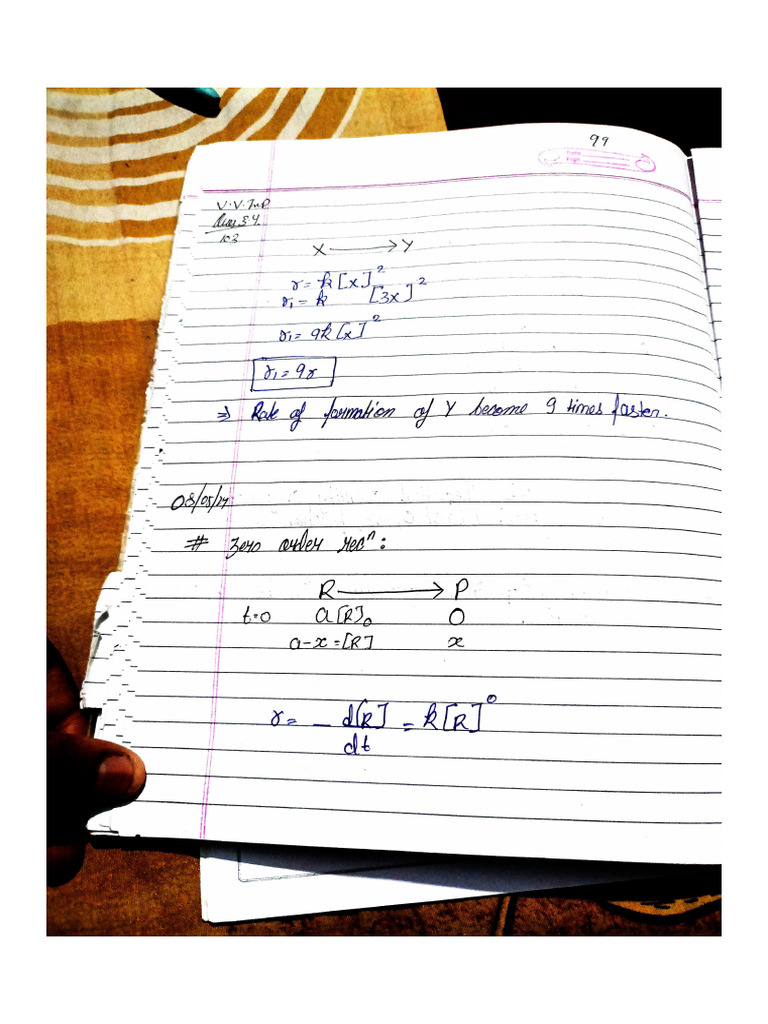 99
V.V.Imp
Ques 3.4
103
X ⟶ Y
r = k[x]²
r₁ = k [3x]²
r₁ = 9k[x]²
r₁ = 9r
⇒ Rate of formation of Y become 9 times faster.
# Zero order recⁿ :
R ⟶ P
t=0 a[R]₀ 0
a-x=[R] x
r = - d[R]/dt = k[R]⁰